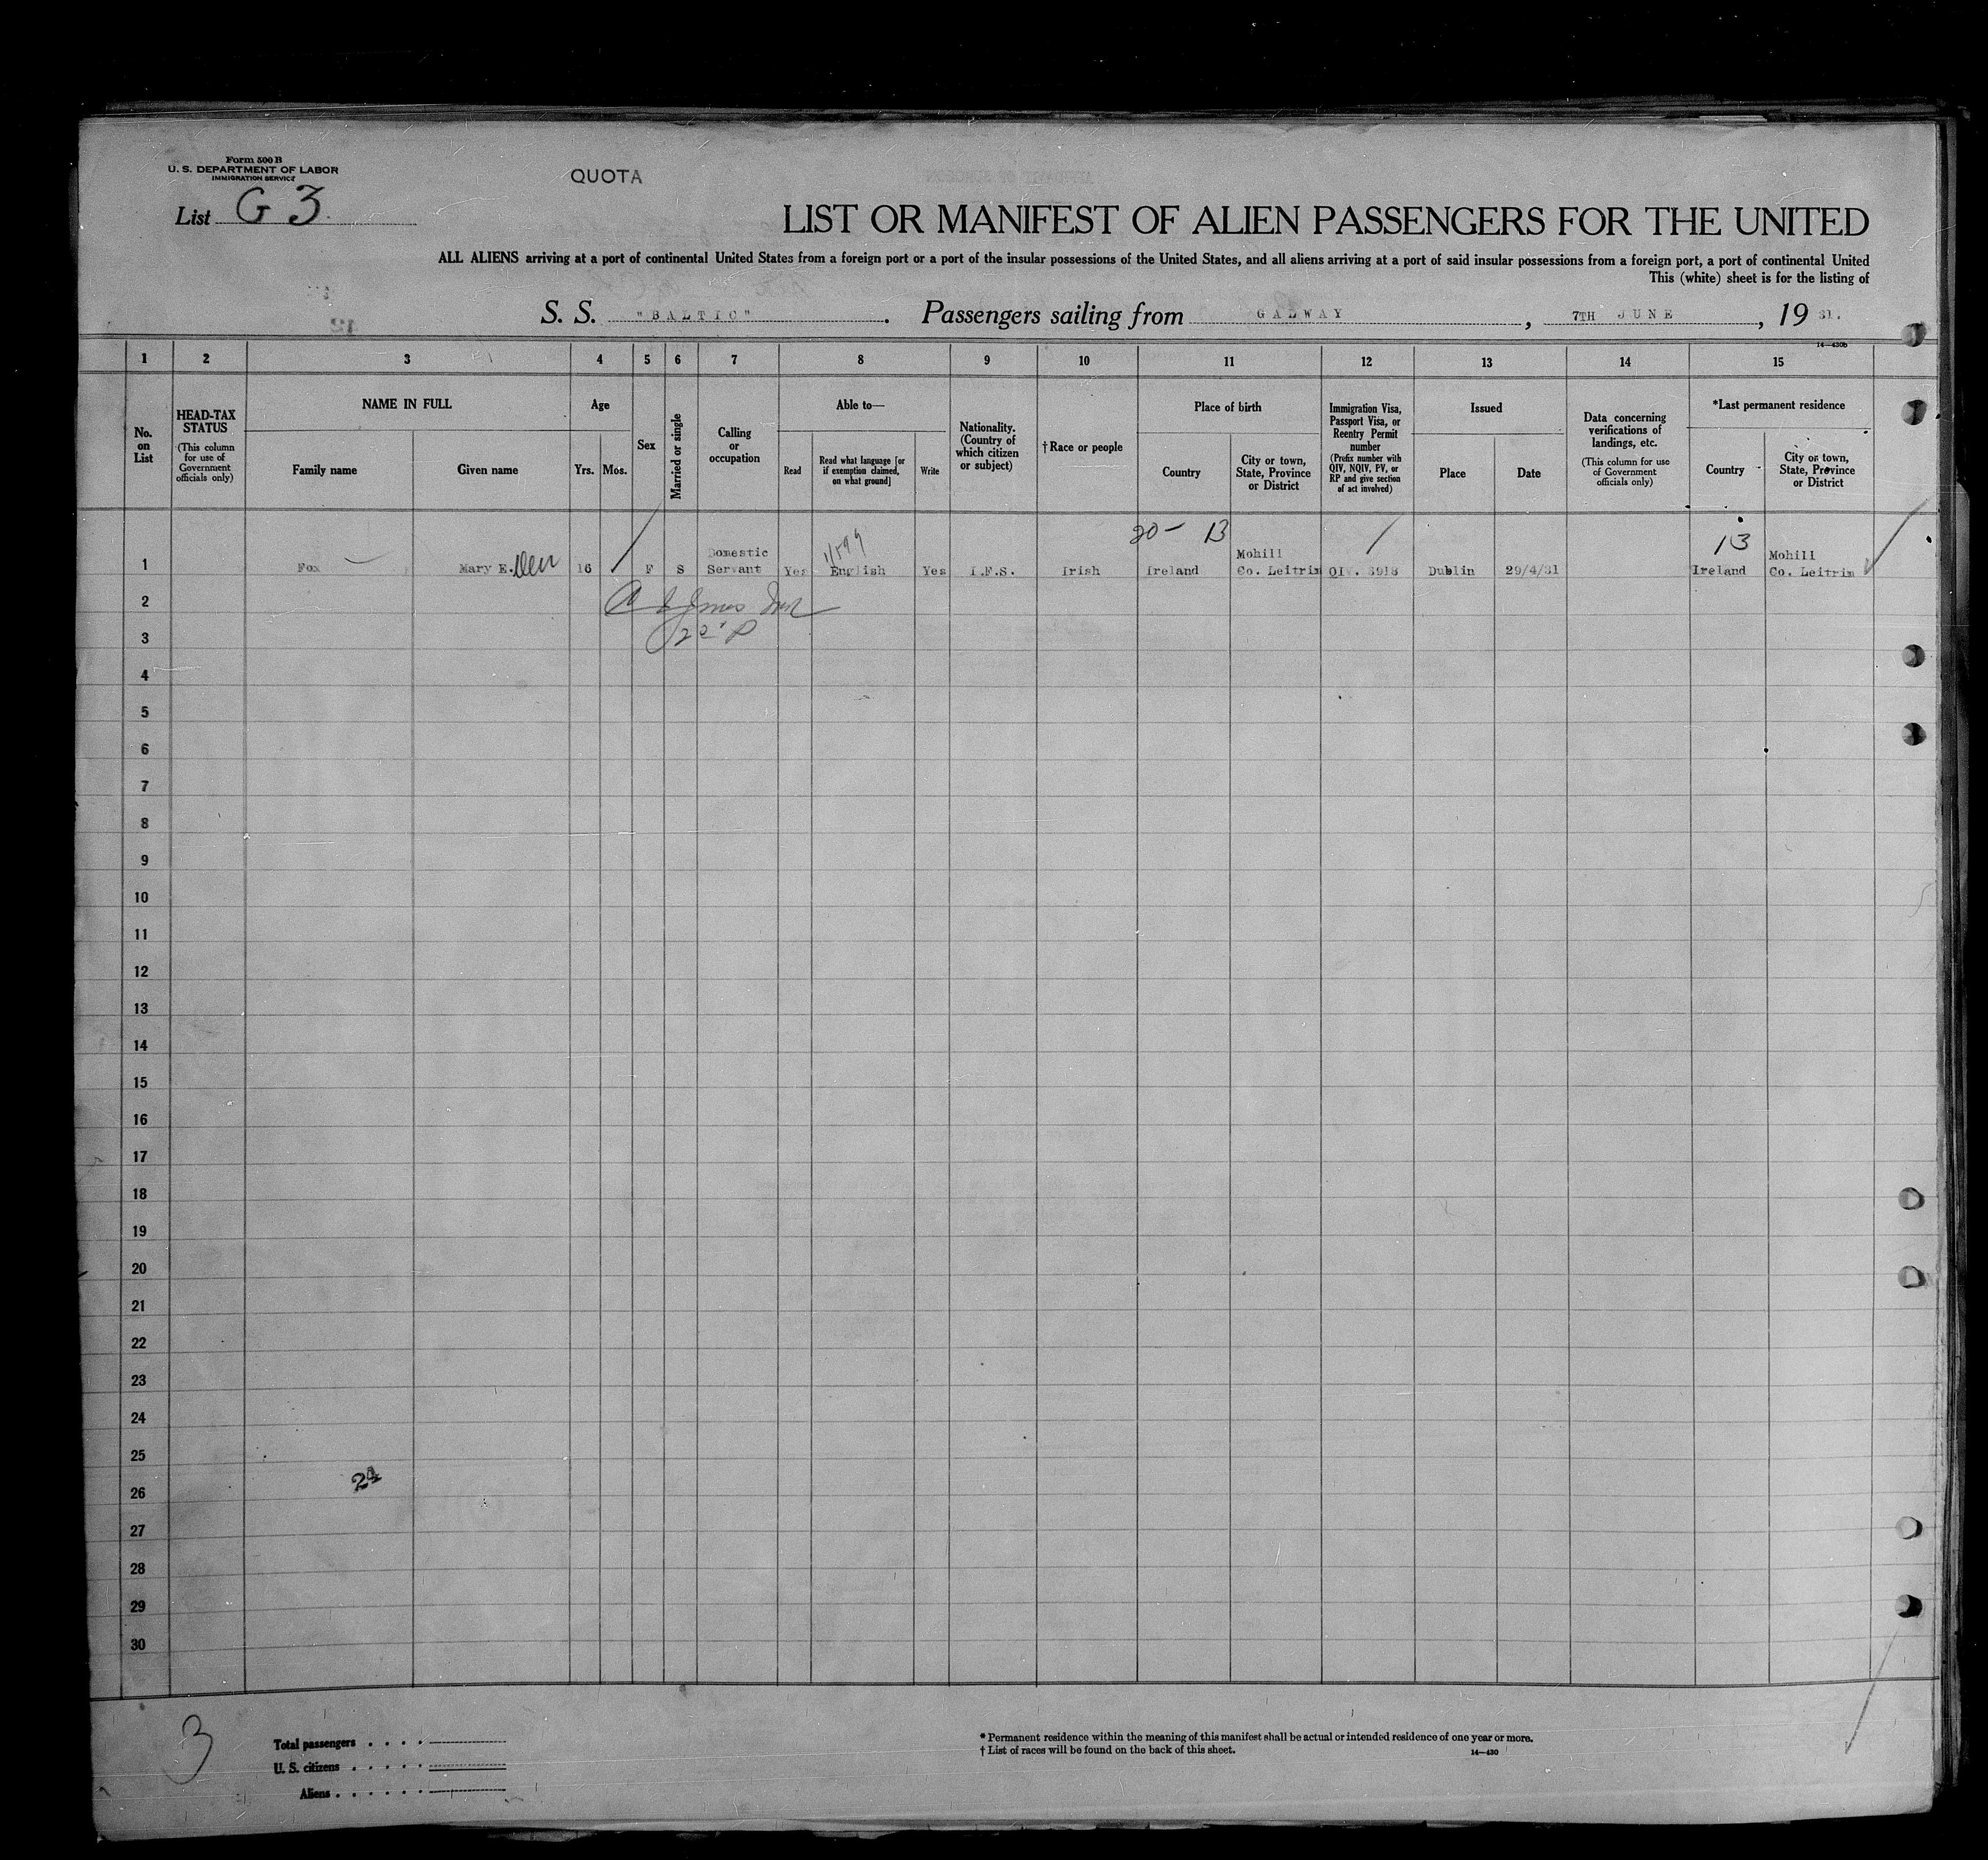 Form 500 B
U. S. DEPARTMENT OF LABOR
IMMIGRATION SERVICE
QUOTA
List G 3
LIST OR MANIFEST OF ALIEN PASSENGERS FOR THE UNITED
ALL ALIENS arriving at a port of continental United States from a foreign port or a port of the insular possessions of the United States, and all aliens arriving at a port of said insular possessions from a foreign port, a port of continental United
This (white) sheet is for the listing of
S. S. "BALTIC". Passengers sailing from GALWAY, 7TH JUNE, 1931.
14—430b
1 2 3 4 5 6 7 8 9 10 11 12 13 14 15
No. on List
HEAD-TAX STATUS
(This column for use of Government officials only)
NAME IN FULL
Family name
Given name
Age
Yrs.
Mos.
Sex
Married or single
Calling or occupation
Able to—
Read
Read what language [or if exemption claimed, on what ground]
Write
Nationality. (Country of which citizen or subject)
† Race or people
Place of birth
Country
City or town, State, Province or District
Immigration Visa, Passport Visa, or Reentry Permit number
(Prefix number with QIV, NQIV, PV, or RP and give section of act involved)
Issued
Place
Date
Data concerning verifications of landings, etc.
(This column for use of Government officials only)
*Last permanent residence
Country
City or town, State, Province or District
20 — 13
13
Domestic Mohill Mohill
1 Fox Mary E. 16 F S Servant Yes English Yes I.F.S. Irish Ireland Co. Leitrim QIV. 3918 Dublin 29/4/31 Ireland Co. Leitrim
2
3
4
5
6
7
8
9
10
11
12
13
14
15
16
17
18
19
20
21
22
23
24
25
26
27
28
29
30
3
Total passengers . . . .
U. S. citizens . . . . .
Aliens . . . . . .
* Permanent residence within the meaning of this manifest shall be actual or intended residence of one year or more.
† List of races will be found on the back of this sheet.
14—430